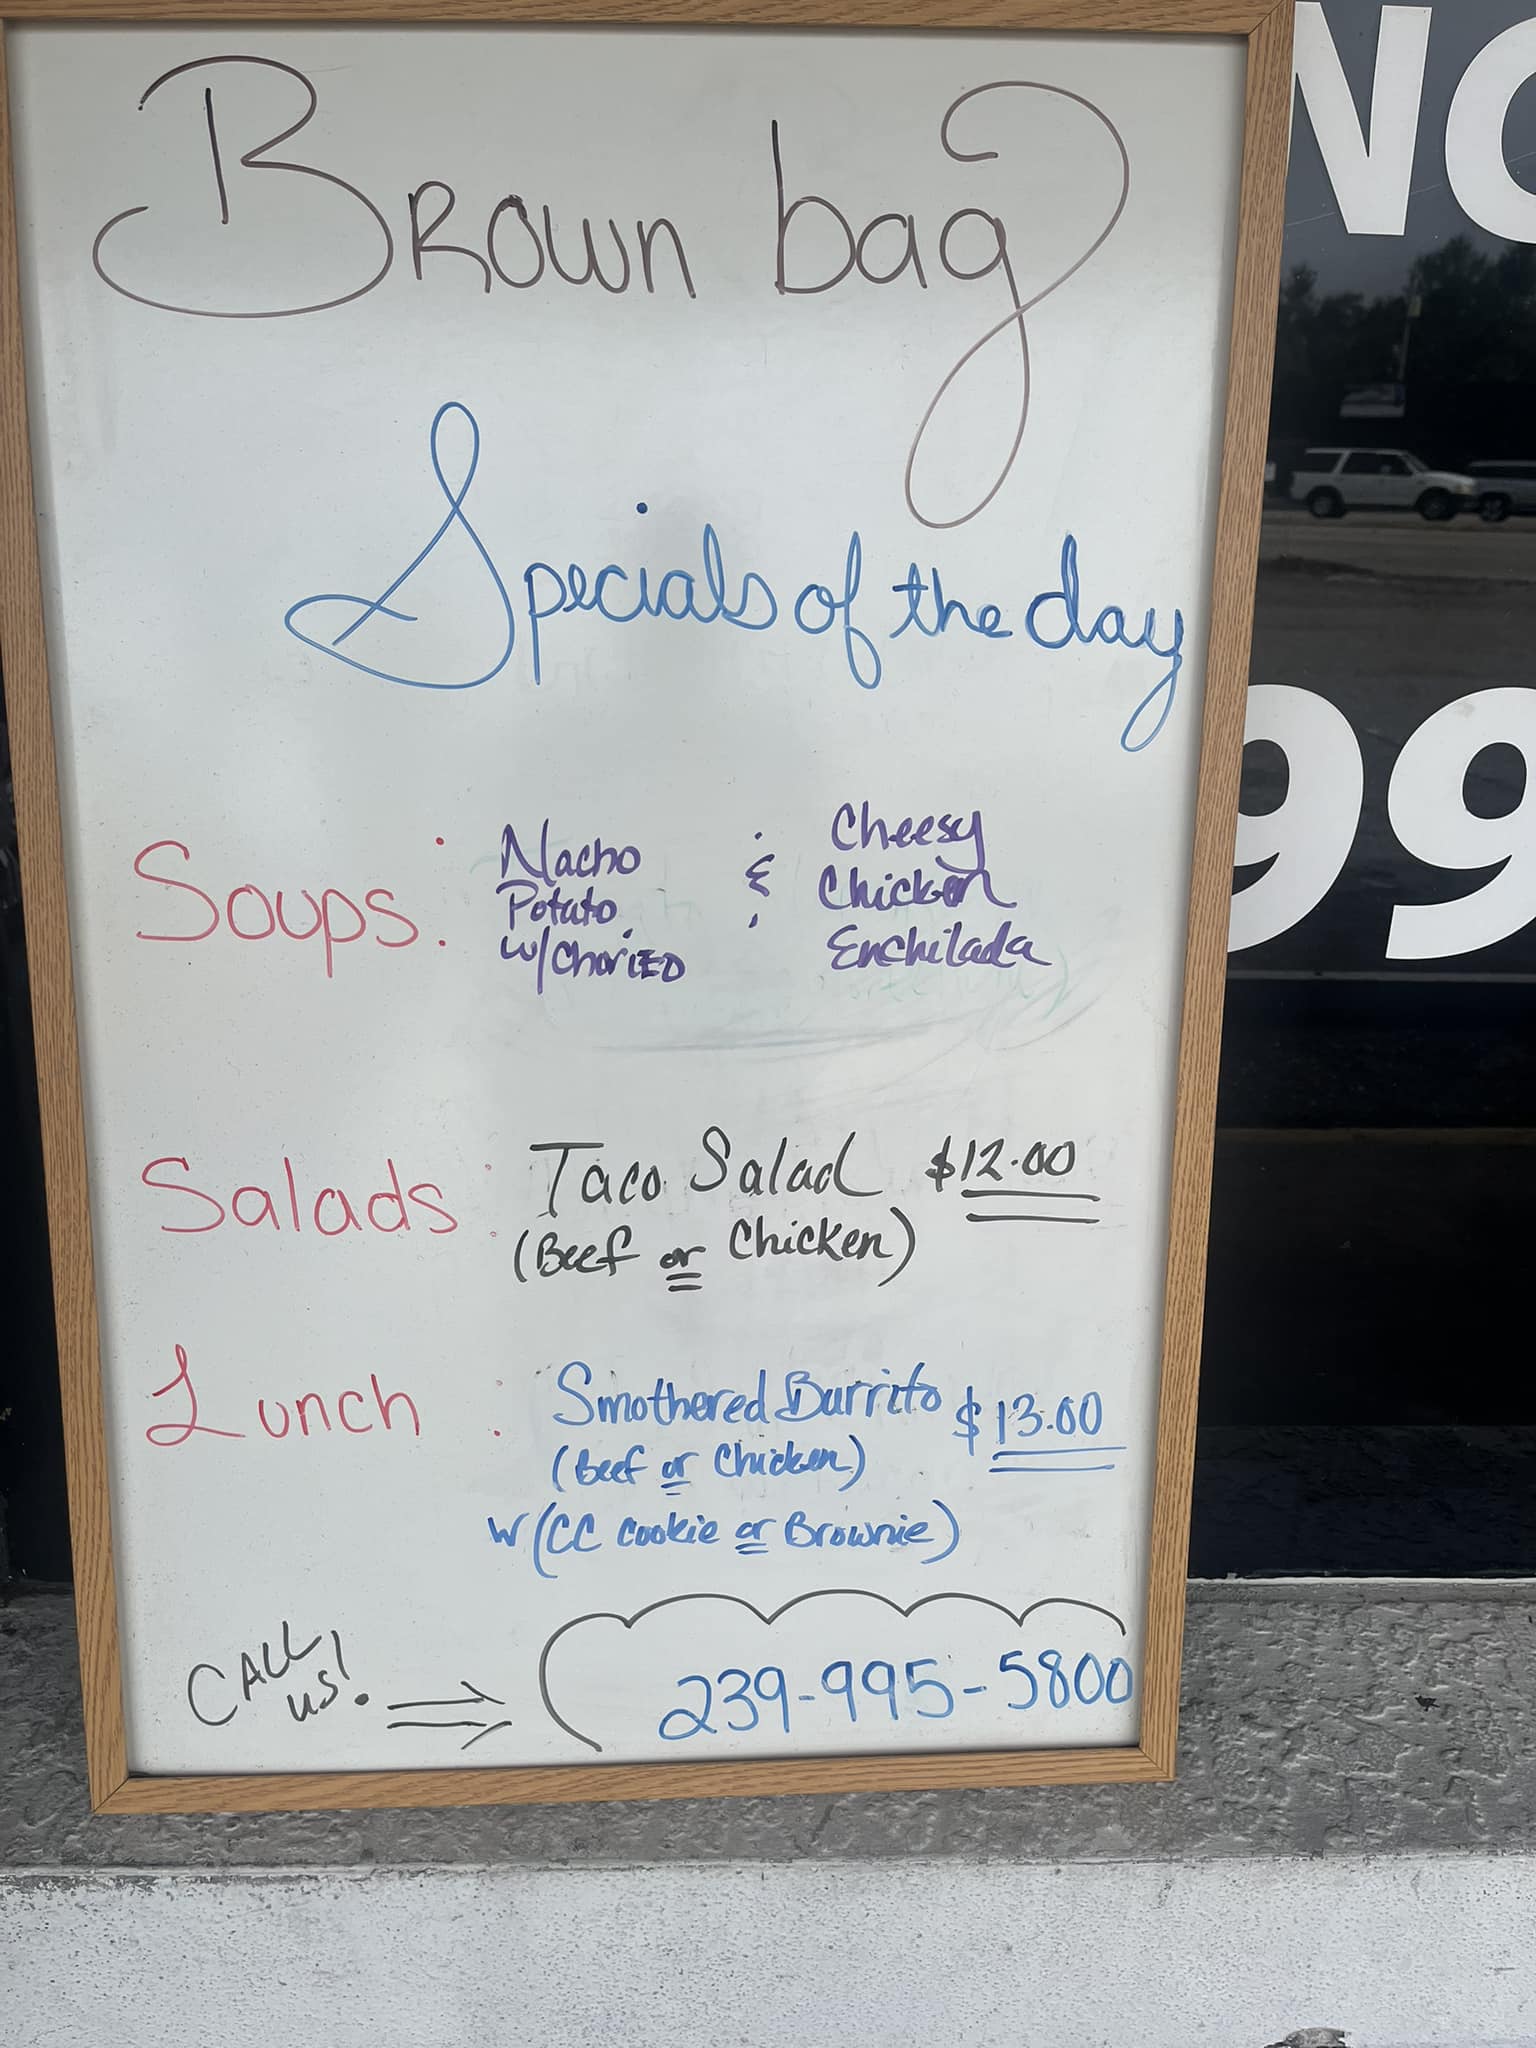 Brown bag
Specials of the day
Soups: Nacho Potato w/Chorizo & Cheesy Chicken Enchilada
Salads: Taco Salad $12.00
(Beef or Chicken)
Lunch: Smothered Burrito $13.00
(Beef or Chicken)
w/(CC cookie or Brownie)
CALL us! 239-995-5800
NO
99